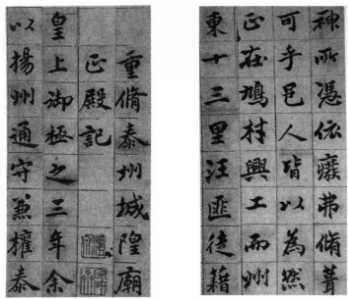 重脩泰州城隍廟
正殿記
皇上御極之三年余
以揚州通守兼權泰
神所憑依癈弗脩葺
可乎邑人皆以為然
正在鳩村興工而州
東十三里汪匪徒籍